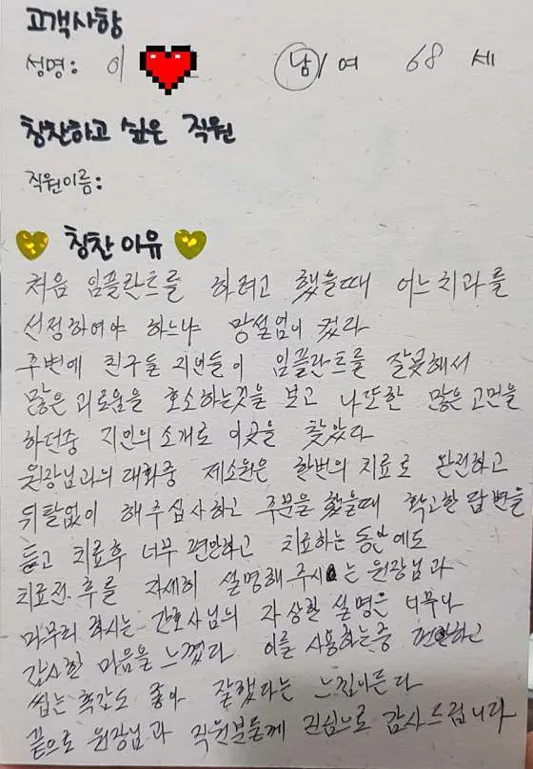 고객사항
성명: 이 남/여 68 세
칭찬하고 싶은 직원
직원이름:
칭찬 이유
처음 임플란트를 하려고 했을때 어느치과를
선정하여야 하느냐 망설임이 컸다
주변에 친구들 지인들이 임플란트를 잘못해서
많은 괴로움을 호소하는것을 보고 나또한 많은 고민을
하던중 지인의 소개로 이곳을 찾았다
원장님과의 대화중 제소원은 한번의 치료로 완전하고
뒤탈없이 해주십사하고 주문을 했을때 확고한 답변을
듣고 치료후 너무 편안하고 치료하는 동안에도
치료전 후를 자세히 설명해 주시는 원장님과
마무리 하시는 간호사님의 자상한 설명은 너무나
감사한 마음을 느꼈다 이를 사용하는중 편안하고
씹는 촉감도 좋아 잘했다는 느낌이든다
끝으로 원장님과 직원분들께 진심으로 감사드립니다